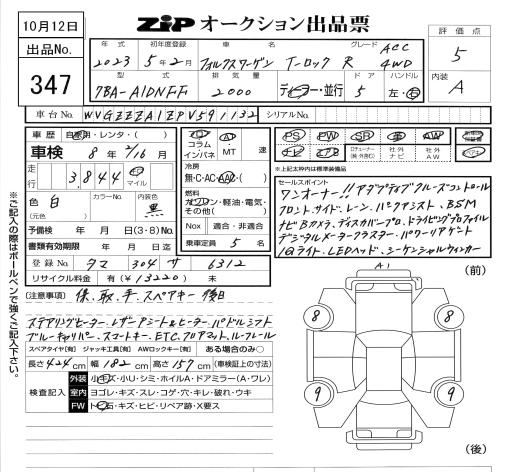 10月12日
ZIP オークション出品票
出品No.
347
評価点
5
内装
A
年式 初年度登録 車名 グレード
2023 5年2月 フォルクスワーゲン T-ロック R ACC 4WD
型式 排気量 ドア ハンドル
7BA-A1DNFF 2000 ディーラー・並行 5 左・右
車台No. WVGZZZA1ZPV591132 シリアルNo.
車歴 自家用・レンタ・( )
車検 8年2/16月
走行 3,844 km マイル
色 白 (元色) カラーNo. 内装色 黒
予備検 年 月 日 (3・8) No.
書類有効期限 年 月 日迄
登録No. タマ 304 サ 6312
リサイクル料金 有 (¥13220) 未
コラム インパネ AT MT 速
冷房
無・C・AC・AAC・( )
燃料
ガソリン・軽油・電気・その他( )
Nox 適合・非適合
乗車定員 5名
PS PW SR 革 AW
ナビ エアB 社外ナビ 社外AW
※上記太枠内は標準装備品
セールスポイント
ワンオーナー!!アダプティブクルーズコントロール
フロント,サイド,レーン,パークアシスト,BSM
ナビBカメラ,ディスカバープロ,ドライビングプロファイル
デジタルメータークラスター・パワーリアゲート
IGライト・LEDヘッド,シーケンシャルウィンカー
(注意事項) 保,取,手,スペアキー後日
ステアリングヒーター,レザーシート&ヒーター,パドルシフト
ブルーキャリパー,スマートキー,ETC,フロアマット,ルーフレール
スペアタイヤ[有] ジャッキ工具[有] AWロックキー[有] ある場合のみ○
長さ 424 cm 幅 182 cm 高さ 157 cm (車検証上の寸法)
検査記入
外装 小キズ・小U・シミ・ホイルA・ドアミラー(A・ワレ)
室内 ヨゴレ・キズ・スレ・コゲ・穴・キレ・破れ・ウキ
FW トビ石・キズ・ヒビ・リペア跡・X要ス
A1
(前)
8 8
9 9
(後)
※ご記入の際はボールペンで強くご記入下さい。